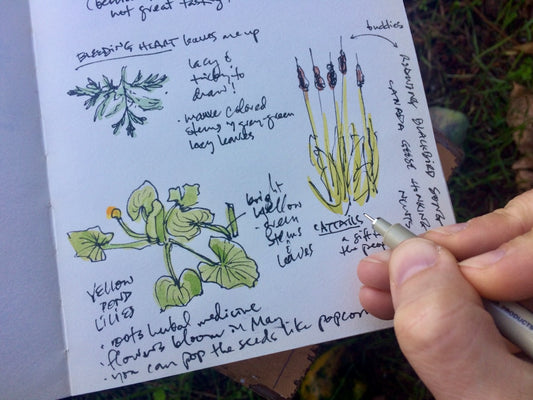 not great tasting)
BLEEDING HEART leaves me up
lacy &
tricky to
draw!
• mauve colored
stems w gray-green
lacy leaves
buddies
CATTAILS
a gift
the peop
bright
yellow
green
stems
&
leaves
YELLOW
POND
LILIES
• roots herbal medicine
• flowers bloom in May
• you can pop the seeds like popcorn
BLACKBIRD SONG
CANADA GEESE HONKING